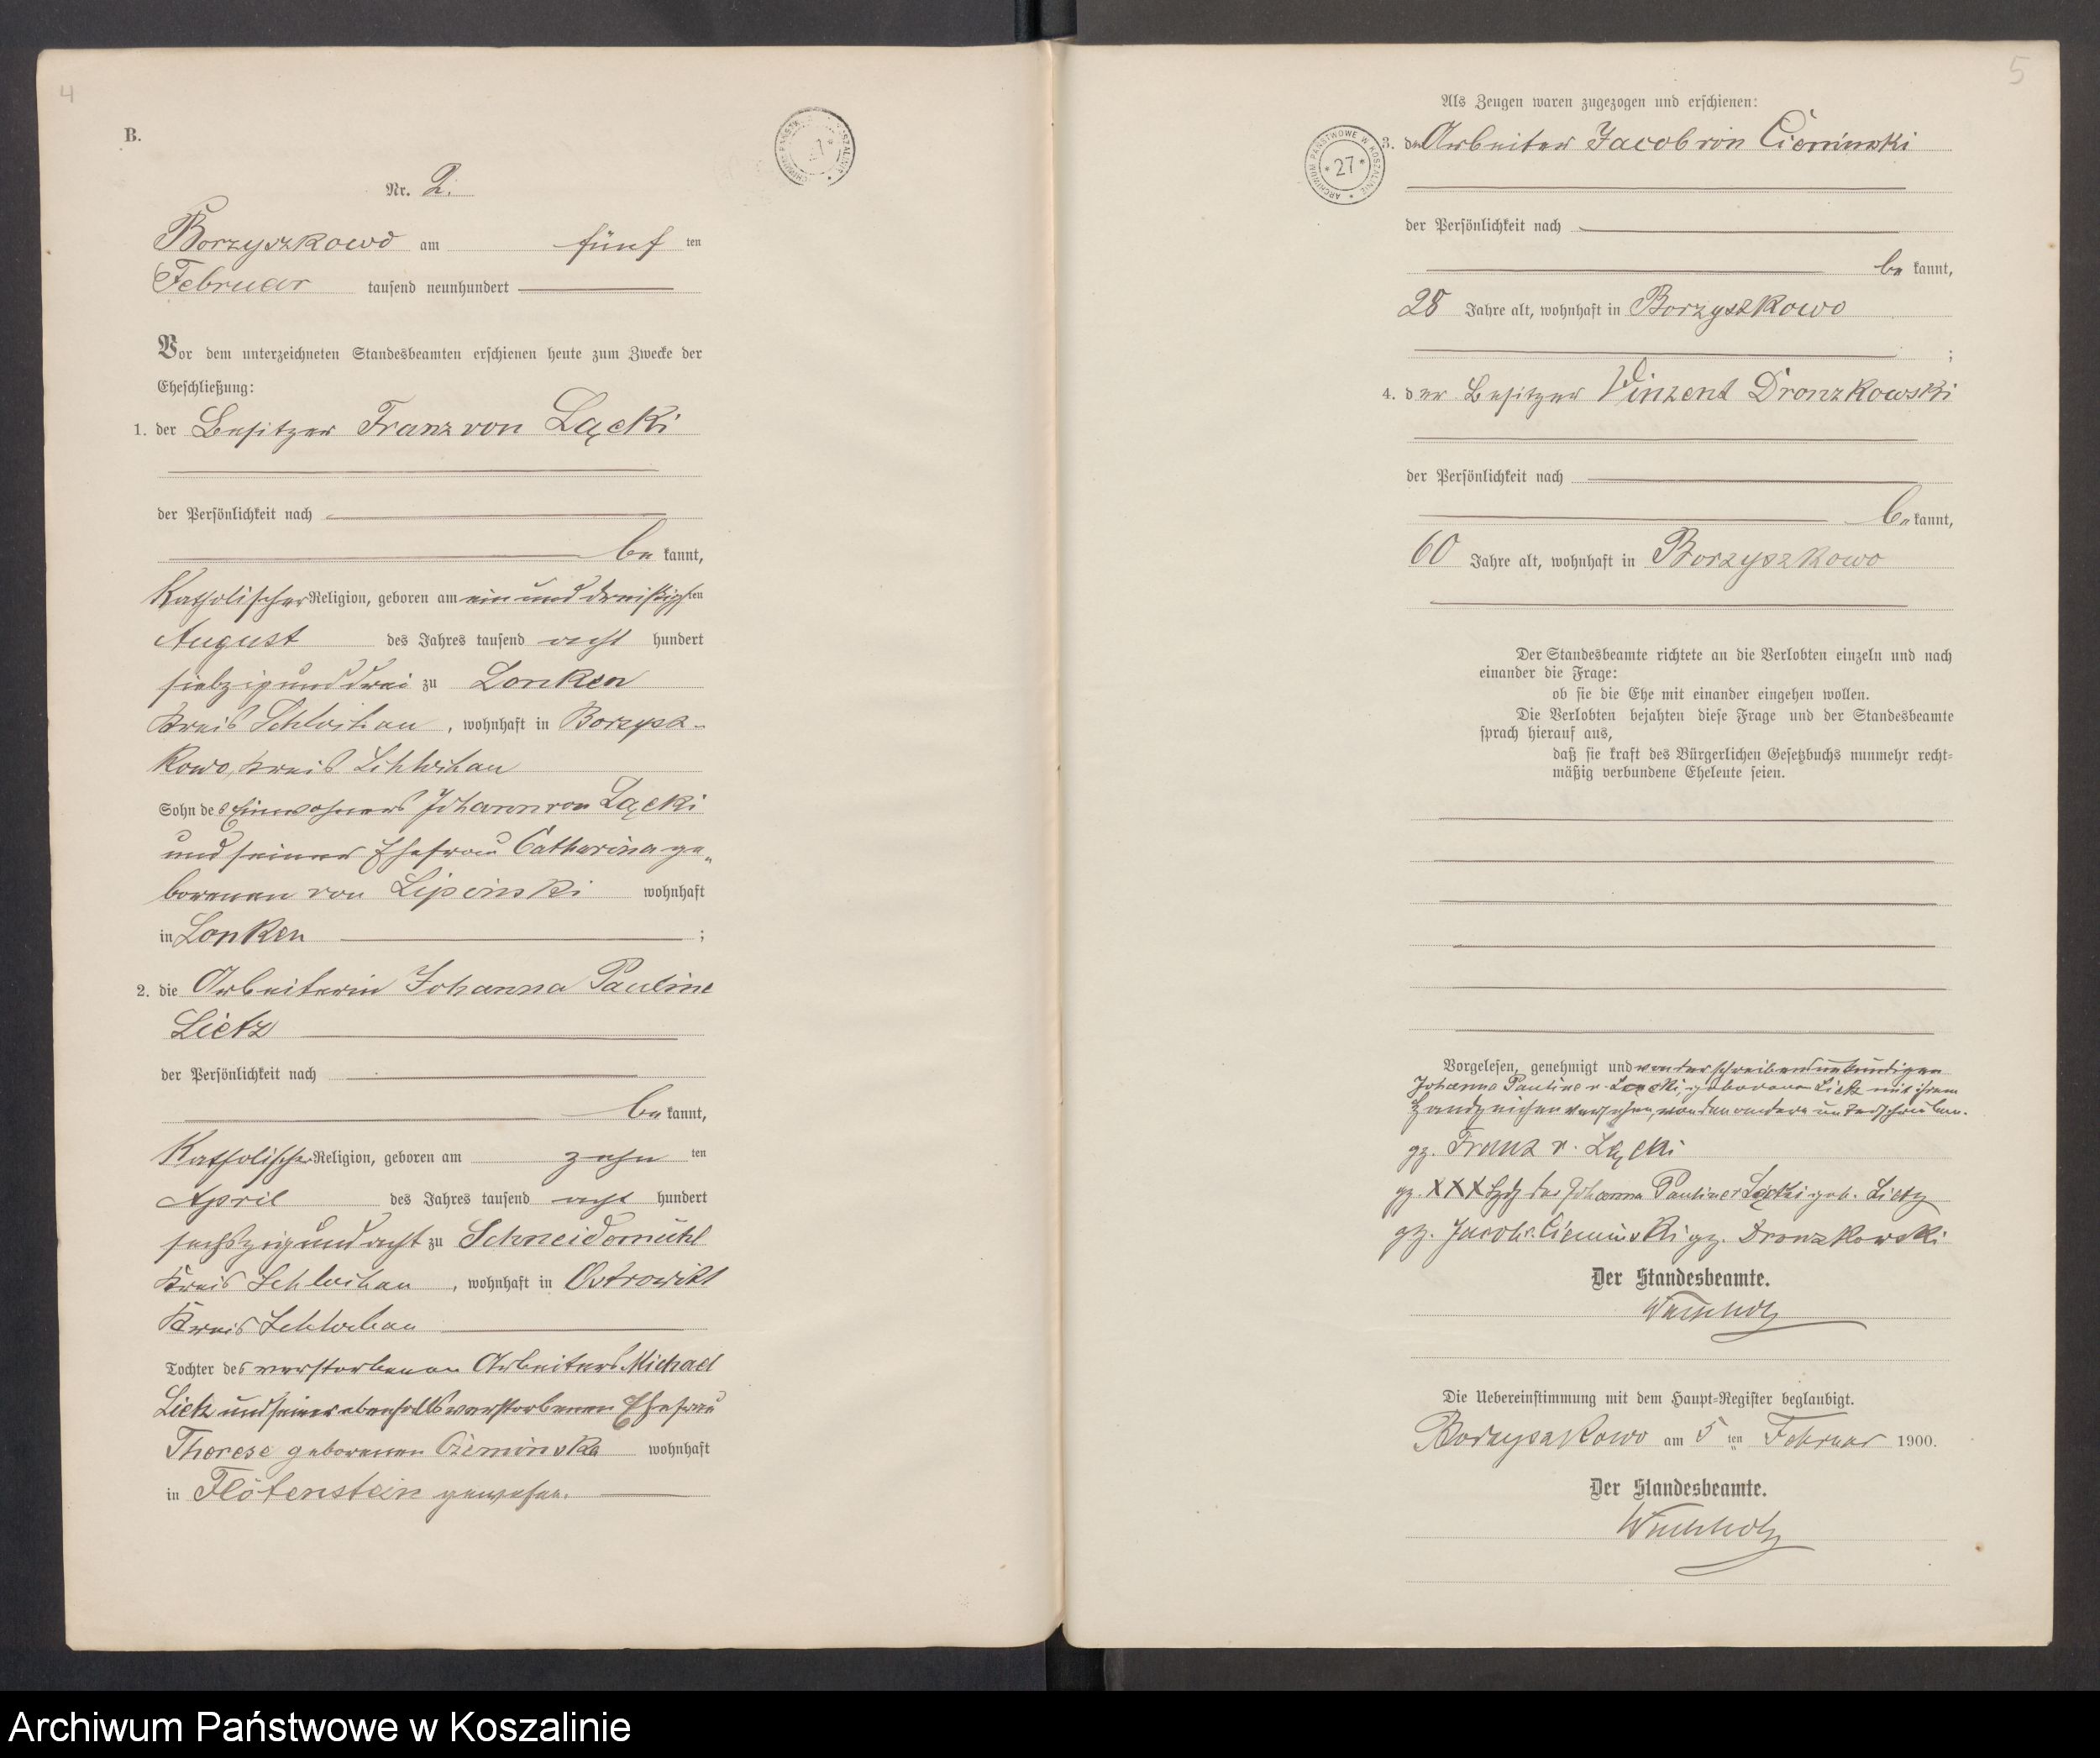 4
B.
Nr. 2.
Borzyszkowo am fünf ten
Februar tausend neunhundert
Vor dem unterzeichneten Standesbeamten erschienen heute zum Zwecke der
Eheschließung:
1. der Besitzer Franz von Łącki
der Persönlichkeit nach
be kannt,
Katholischer Religion, geboren am ein und dreißigsten
August des Jahres tausend acht hundert
siebzig und drei zu Lonken
Kreis Schlochau, wohnhaft in Borzysz-
kowo, Kreis Schlochau
Sohn des Einwohners Johann von Łącki
und seiner Ehefrau Catharina ge-
borenen von Lipinski wohnhaft
in Lonken ;
2. die Arbeiterin Johanna Pauline
Lietz
der Persönlichkeit nach
be kannt,
Katholischer Religion, geboren am zehn ten
April des Jahres tausend acht hundert
sechszig und acht zu Schneidemühl
Kreis Schlochau, wohnhaft in Ostrowitt
Kreis Schlochau
Tochter des verstorbenen Arbeiters Michael
Lietz und seiner ebenfalls verstorbenen Ehefrau
Therese geborenen Cieminska wohnhaft
in Flötenstein gewesen.
5
Als Zeugen waren zugezogen und erschienen:
ARCHIWUM PAŃSTWOWE W KOSZALINIE * 27 *
3. der Arbeiter Jacob von Cieminski
der Persönlichkeit nach
be kannt,
28 Jahre alt, wohnhaft in Borzyszkowo
;
4. der Besitzer Vinzent Dronzkowski
der Persönlichkeit nach
be kannt,
60 Jahre alt, wohnhaft in Borzyszkowo
Der Standesbeamte richtete an die Verlobten einzeln und nach
einander die Frage:
ob sie die Ehe mit einander eingehen wollen.
Die Verlobten bejahten diese Frage und der Standesbeamte
sprach hierauf aus,
daß sie kraft des Bürgerlichen Gesetzbuchs nunmehr recht=
mäßig verbundene Eheleute seien.
Vorgelesen, genehmigt und von der schreibensunkundigen
Johanna Pauline v. Łącki, geborene Lietz mit ihrem
Handzeichen versehen, von den andern unterschrieben.
gz. Franz v. Łącki
gz. XXX Hdz der Johanna Pauline v Łącki geb. Lietz
gz. Jacob v. Cieminski gz. Dronzkowski
Der Standesbeamte.
Wachholz
Die Uebereinstimmung mit dem Haupt=Register beglaubigt.
Borzyszkowo am 5 ten Februar 1900.
Der Standesbeamte.
Wachholz
Archiwum Państwowe w Koszalinie